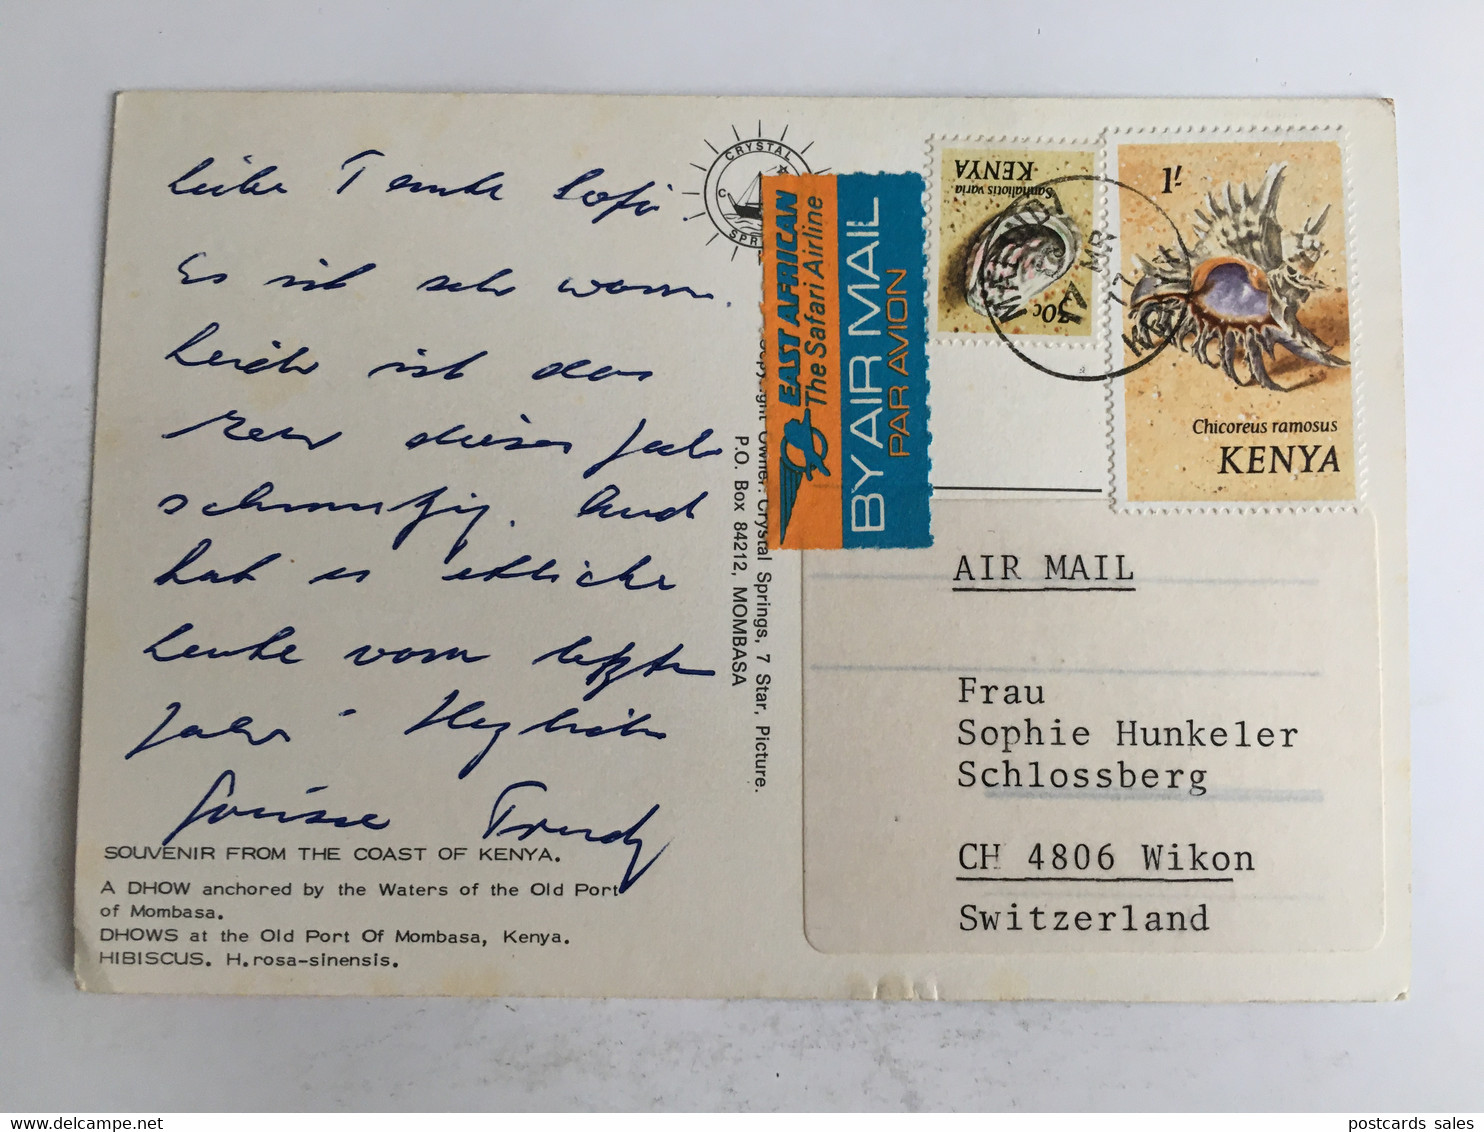 Liebe Tante Sofi!
Es ist sehr warm.
Leider ist das
Meer dieses Jahr
schmutzig. Auch
hat es etliche
Leute vom letzten
Jahr. Herzliche
Grüsse Trudy
SOUVENIR FROM THE COAST OF KENYA.
A DHOW anchored by the Waters of the Old Port
of Mombasa.
DHOWS at the Old Port Of Mombasa, Kenya.
HIBISCUS. H.rosa-sinensis.
CRYSTAL
C
Owner: Crystal Springs, 7 Star, Picture.
P.O. Box 84212, MOMBASA
EAST AFRICAN
The Safari Airline
BY AIR MAIL
PAR AVION
KENYA
Sanhaliotis varia
30c
MR
77
1/-
Chicoreus ramosus
KENYA
AIR MAIL
Frau
Sophie Hunkeler
Schlossberg
CH 4806 Wikon
Switzerland
postcards sales